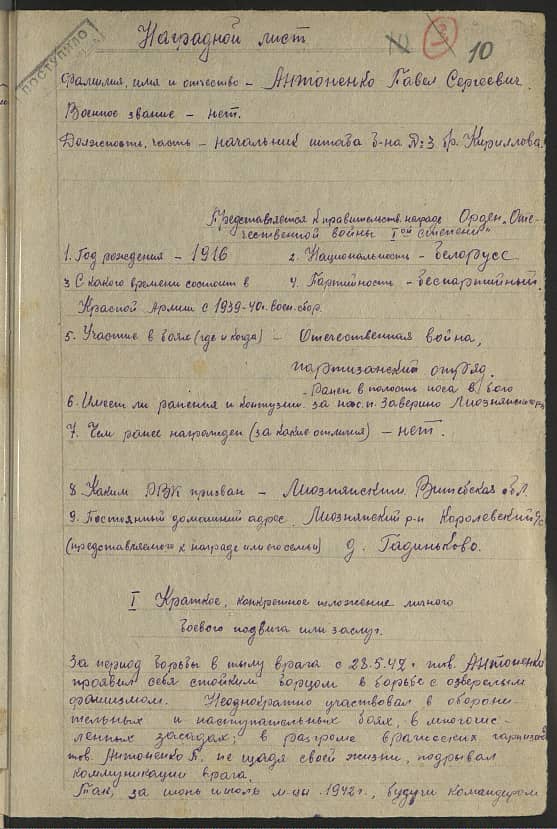 ПОСТУПИЛО
10
10
Наградной лист
Фамилия, имя и отчество – Антоненко Павел Сергеевич.
Военное звание – нет.
Должность, часть – начальник штаба б-на № 3 бр. Кириллова.
Представляется к правительств. награде Орден „Оте-
чественной войны Iой степени"
1. Год рождения – 1916 2. Национальность – белорусс.
3 С какого времени состоит в 4. Партийность – беспартийный.
Красной Армии с 1939-40г. воен. сбор.
5. Участие в боях (где и когда) – Отечественная война,
партизанский отряд.
– Ранен в полость носа в бою
6. Имеет ли ранения и контузии. за нас. п. Заверино Лиознянск
7. Чем ранее награжден (за какие отличия) – нет.
8. Каким РВК призван – Лиознянским Витебская обл.
9. Постоянный домашний адрес. Лиознянский р-н Королевский с/с
(представляемого к награде или его семьи) д. Гадиньково.
I Краткое, конкретное изложение личного
боевого подвига или заслуг.
За период борьбы в тылу врага с 28.5.42 г тов. Антоненко
проявил себя стойким борцом в борьбе с озверелым
фашизмом. Неоднократно участвовал в оборони-
тельных и наступательных боях, в многочис-
ленных засадах; в разгроме вражеских гарнизонов
тов. Антоненко П. не щадя своей жизни, подрывал
коммуникации врага.
Так, за июнь июль м-цы 1942 г., будучи командиром